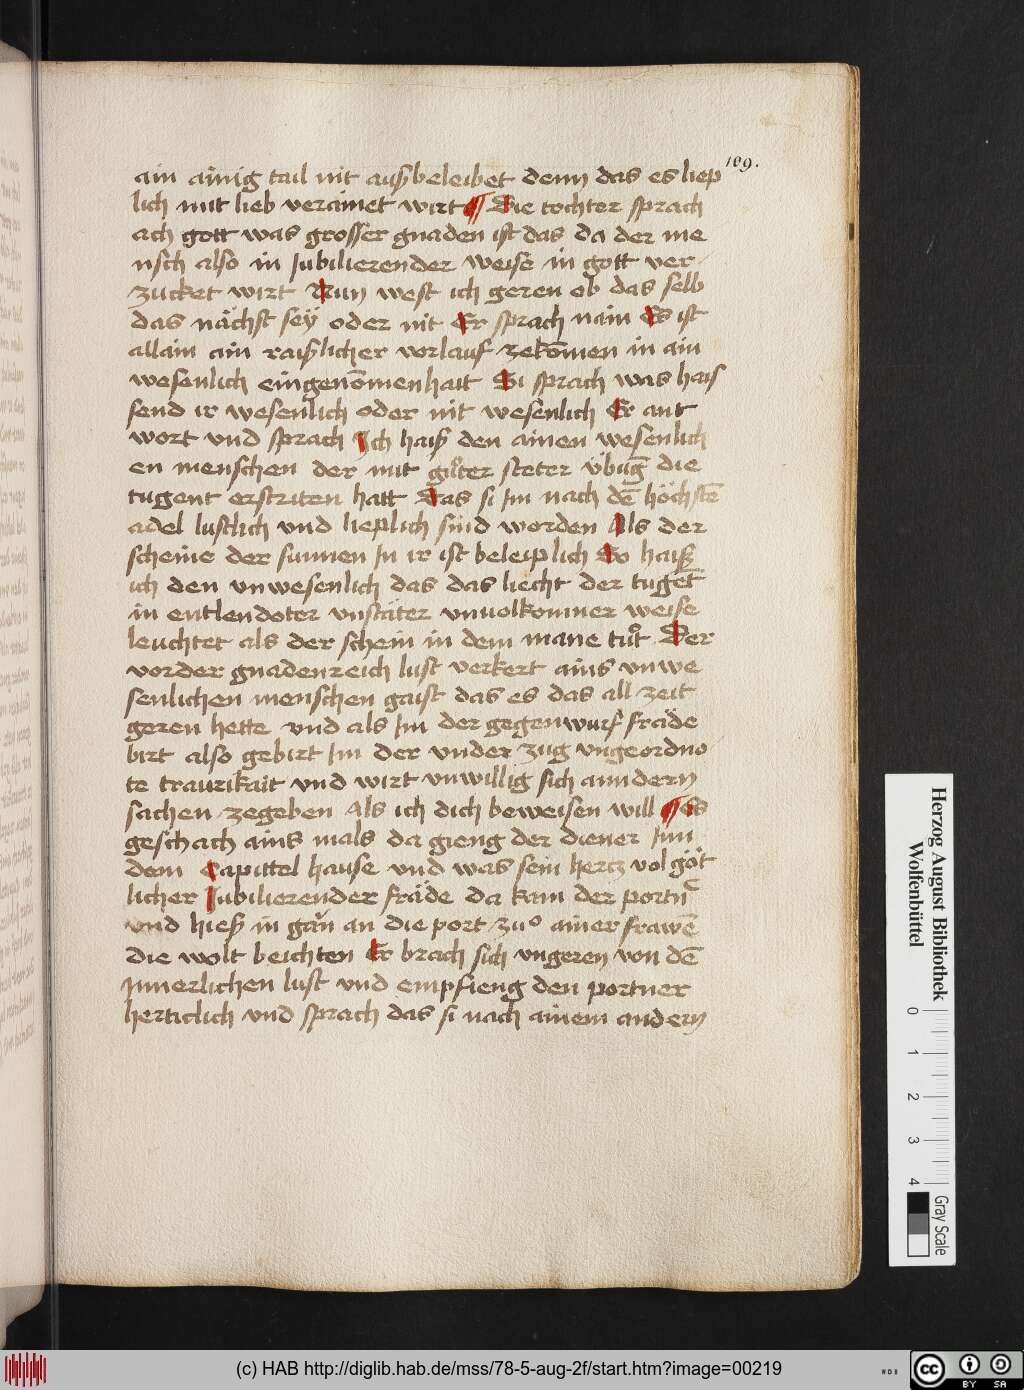 109.
ain ainig tail nit auß beleibet denn das es liep
lich mit lieb verainet wirt ¶ Die tochter sprach
ach gott was grosser gnaden ist das da der me
nsch also in Jubilierender weise in gott ver
zucket wirt Nun west ich geren ob das selb
das nächst seÿ oder nit Er sprach nain Es ist
allain ain raißlicher vorlauf zekōmen in ain
wesenlich eingenōmenhait Si sprach was hais
send ir wesenlich oder nit wesenlich Er ant
wort vnd sprach Ich haiß den ainen wesenlich
en menschen der mit guͦter steter vͤbūg die
tugent erstriten hatt Das si Im nach dē höchstē
adel lustlich vnd lieplich sind worden Als der
scheine der sunnen In ir ist beleiplich So haiß
ich den vnwesenlich das das liecht der tugēt
in entlendoter vnstäter vnuolkomner weise
leuchtet als der schein in dem mane tuͦt Der
vorder gnadenreich lust verkert ains vnwe
senlichen menschen gaist das es das all zeit
geren hette vnd als Im der gegenwurf fräde
birt also gebirt Im der vnder zug vngeordno
te traurikait vnd wirt vnwillig sich anndern
sachen zegeben Als ich dich beweisen will ¶ Es
geschach ains mals da gieng der diener Inn
dem Capittel hause vnd was sein hertz vol göt
licher Jubilierender fräde da kam der portn̄
vnd hieß in gān an die port zuͦ ainer frawē
die wolt beichten Er brach sich vngeren von dē
Innerlichen lust vnd empfieng den portner
herticlich vnd sprach das si nach ainem andern
Herzog August Bibliothek
Wolfenbüttel
0 1 2 3 4
Gray Scale
(c) HAB http://diglib.hab.de/mss/78-5-aug-2f/start.htm?image=00219
WDB
cc BY SA